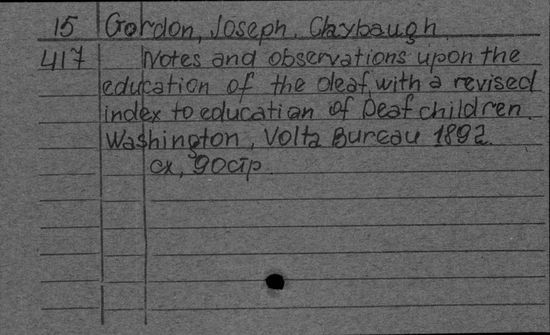 15 Gordon, Joseph. Claybaugh
417 Notes and observations upon the
education of the deaf, with a revised
index to education of Deaf children.
Washington, Volta Bureau 1892.
cx,